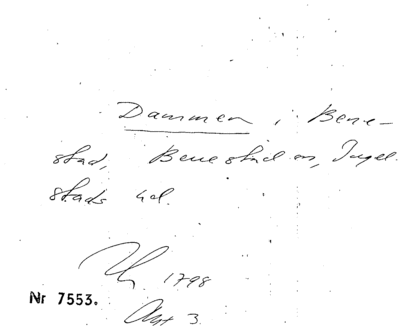 Dammen i Bene-
stad, Benestad sn, Ingel-
stads hd.
1798
Nr 7553.
Akt 3